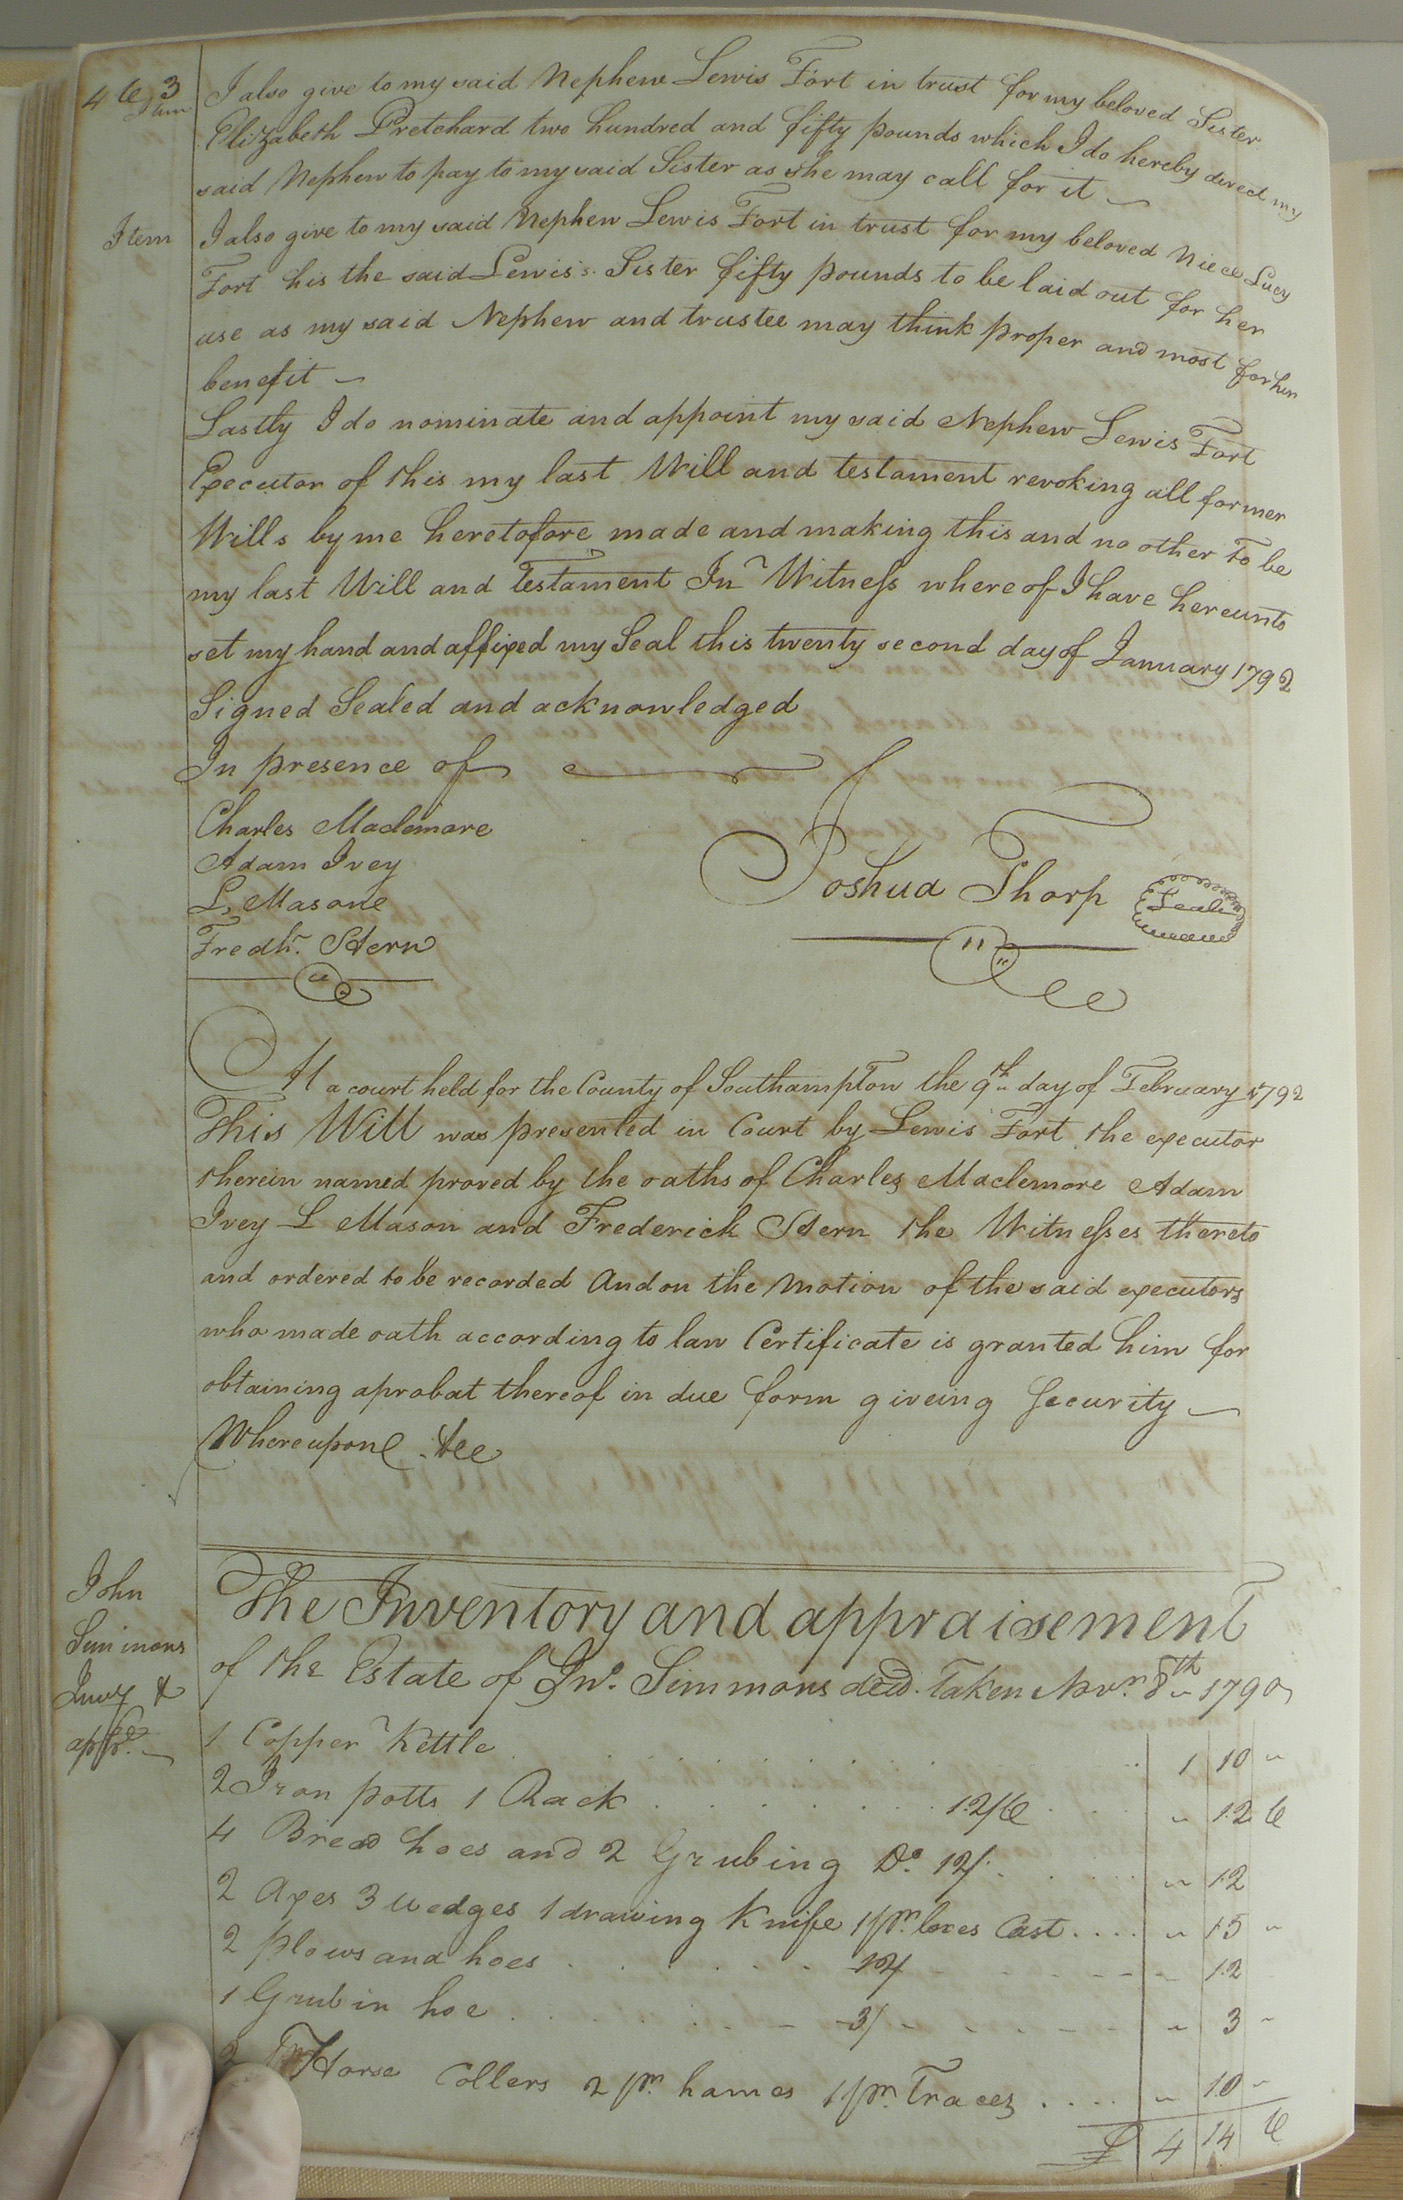 463
Item
I also give to my said Nephew Lewis Fort in trust for my beloved Sister
Elizabeth Pretchard two hundred and fifty pounds which I do hereby direct my
said Nephew to pay to my said Sister as she may call for it
Item
I also give to my said Nephew Lewis Fort in trust for my beloved Niece Lucy
Fort his the said Lewis's Sister fifty pounds to be laid out for her
use as my said Nephew and trustee may think proper and most for her
benefit
Lastly I do nominate and appoint my said Nephew Lewis Fort
Executor of this my last Will and testament revoking all former
Wills by me heretofore made and making this and no other to be
my last Will and Testament In Witness whereof I have hereunto
set my hand and affixed my Seal this twenty second day of January 1792
Signed Sealed and acknowledged
In presence of
Charles Maclemore
Adam Ivey
L. Masone
Fredk. Stern
Joshua Thorp Seal
At a court held for the County of Southampton the 9th day of February 1792
This Will was presented in Court by Lewis Fort the executor
therein named proved by the oaths of Charles Maclemore Adam
Ivey L Mason and Frederick Stern the Witnesses thereto
and ordered to be recorded And on the Motion of the said executors
who made oath according to law Certificate is granted him for
obtaining aprobat thereof in due form giveing Security
Whereupon &ce
John
Simmons
Invy &
appr.
The Inventory and appraisement
of the Estate of Jno. Simmons decd. Taken Novr. 8th 1790
1 Copper Kettle 1 10 "
2 Iron potts 1 Rack 12/6 " 12 6
4 Bread hoes and 2 Grubing Do. 12/. " 12
2 Axes 3 wedges 1 drawing Knife 1 pr. Cast " 15 "
2 plows and hoes 12/ 12
1 Grubin hoe 3/ " 3 "
2 Horse Collers 2 pr. hames 1 pr. Traces " 10 "
£ 4 14 6